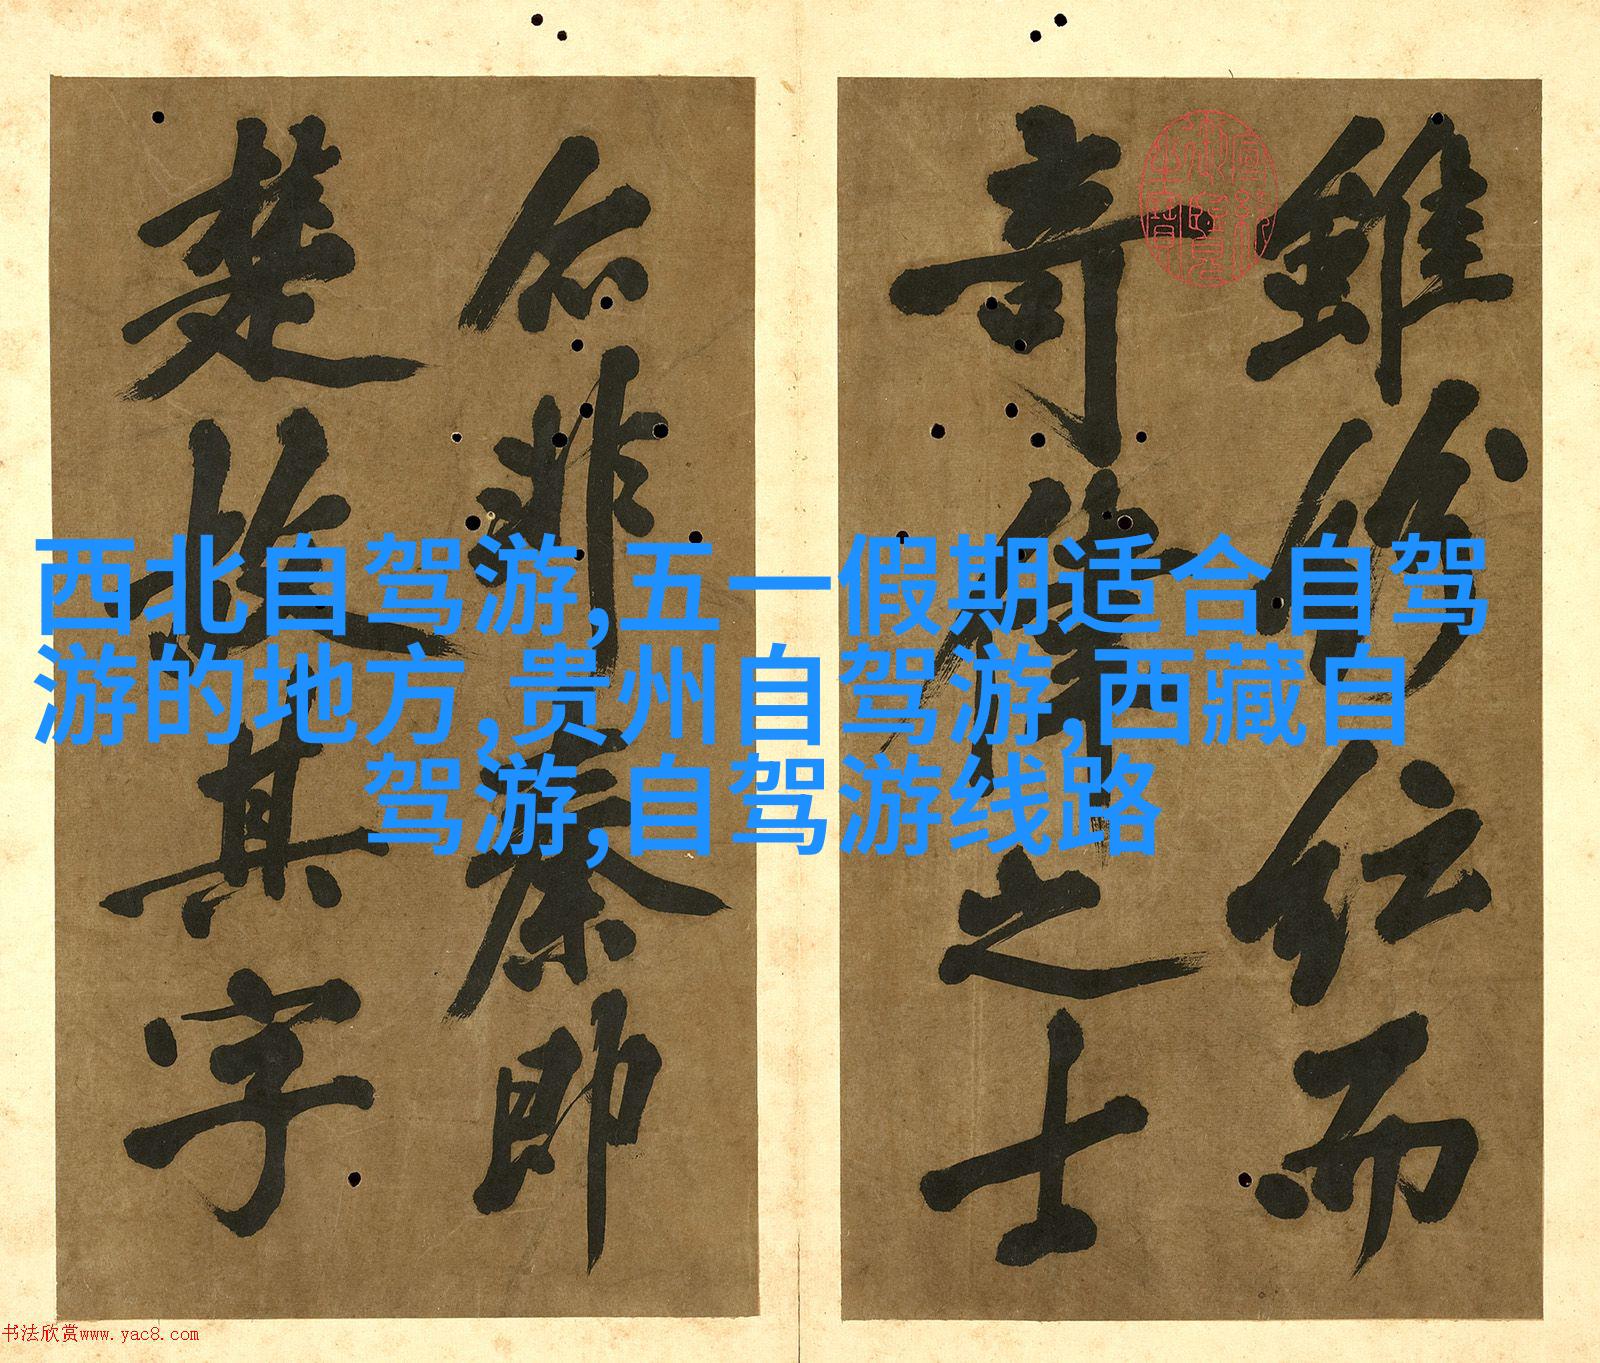 雖紛紜而
奇偉之士
非秦即
楚故其字
西北自驾游,五一假期适合自驾
游的地方,贵州自驾游,西藏自
驾游,自驾游线路
书法欣赏www.yac8.com